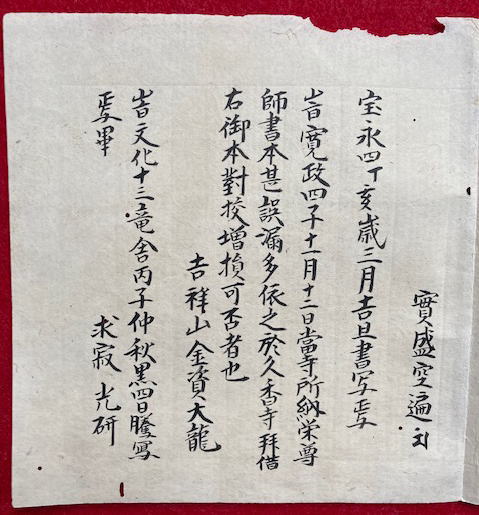 實盛空遍
宝永四丁亥歳三月吉旦書写
旹寛政四子十一月十二日當寺所納栄尊
師書本甚誤漏多依之於久香寺拜借
右御本對挍增損可否者也
吉祥山金資大龍
旹文化十三竜舎丙子仲秋黒四日謄寫
畢
求寂 光研